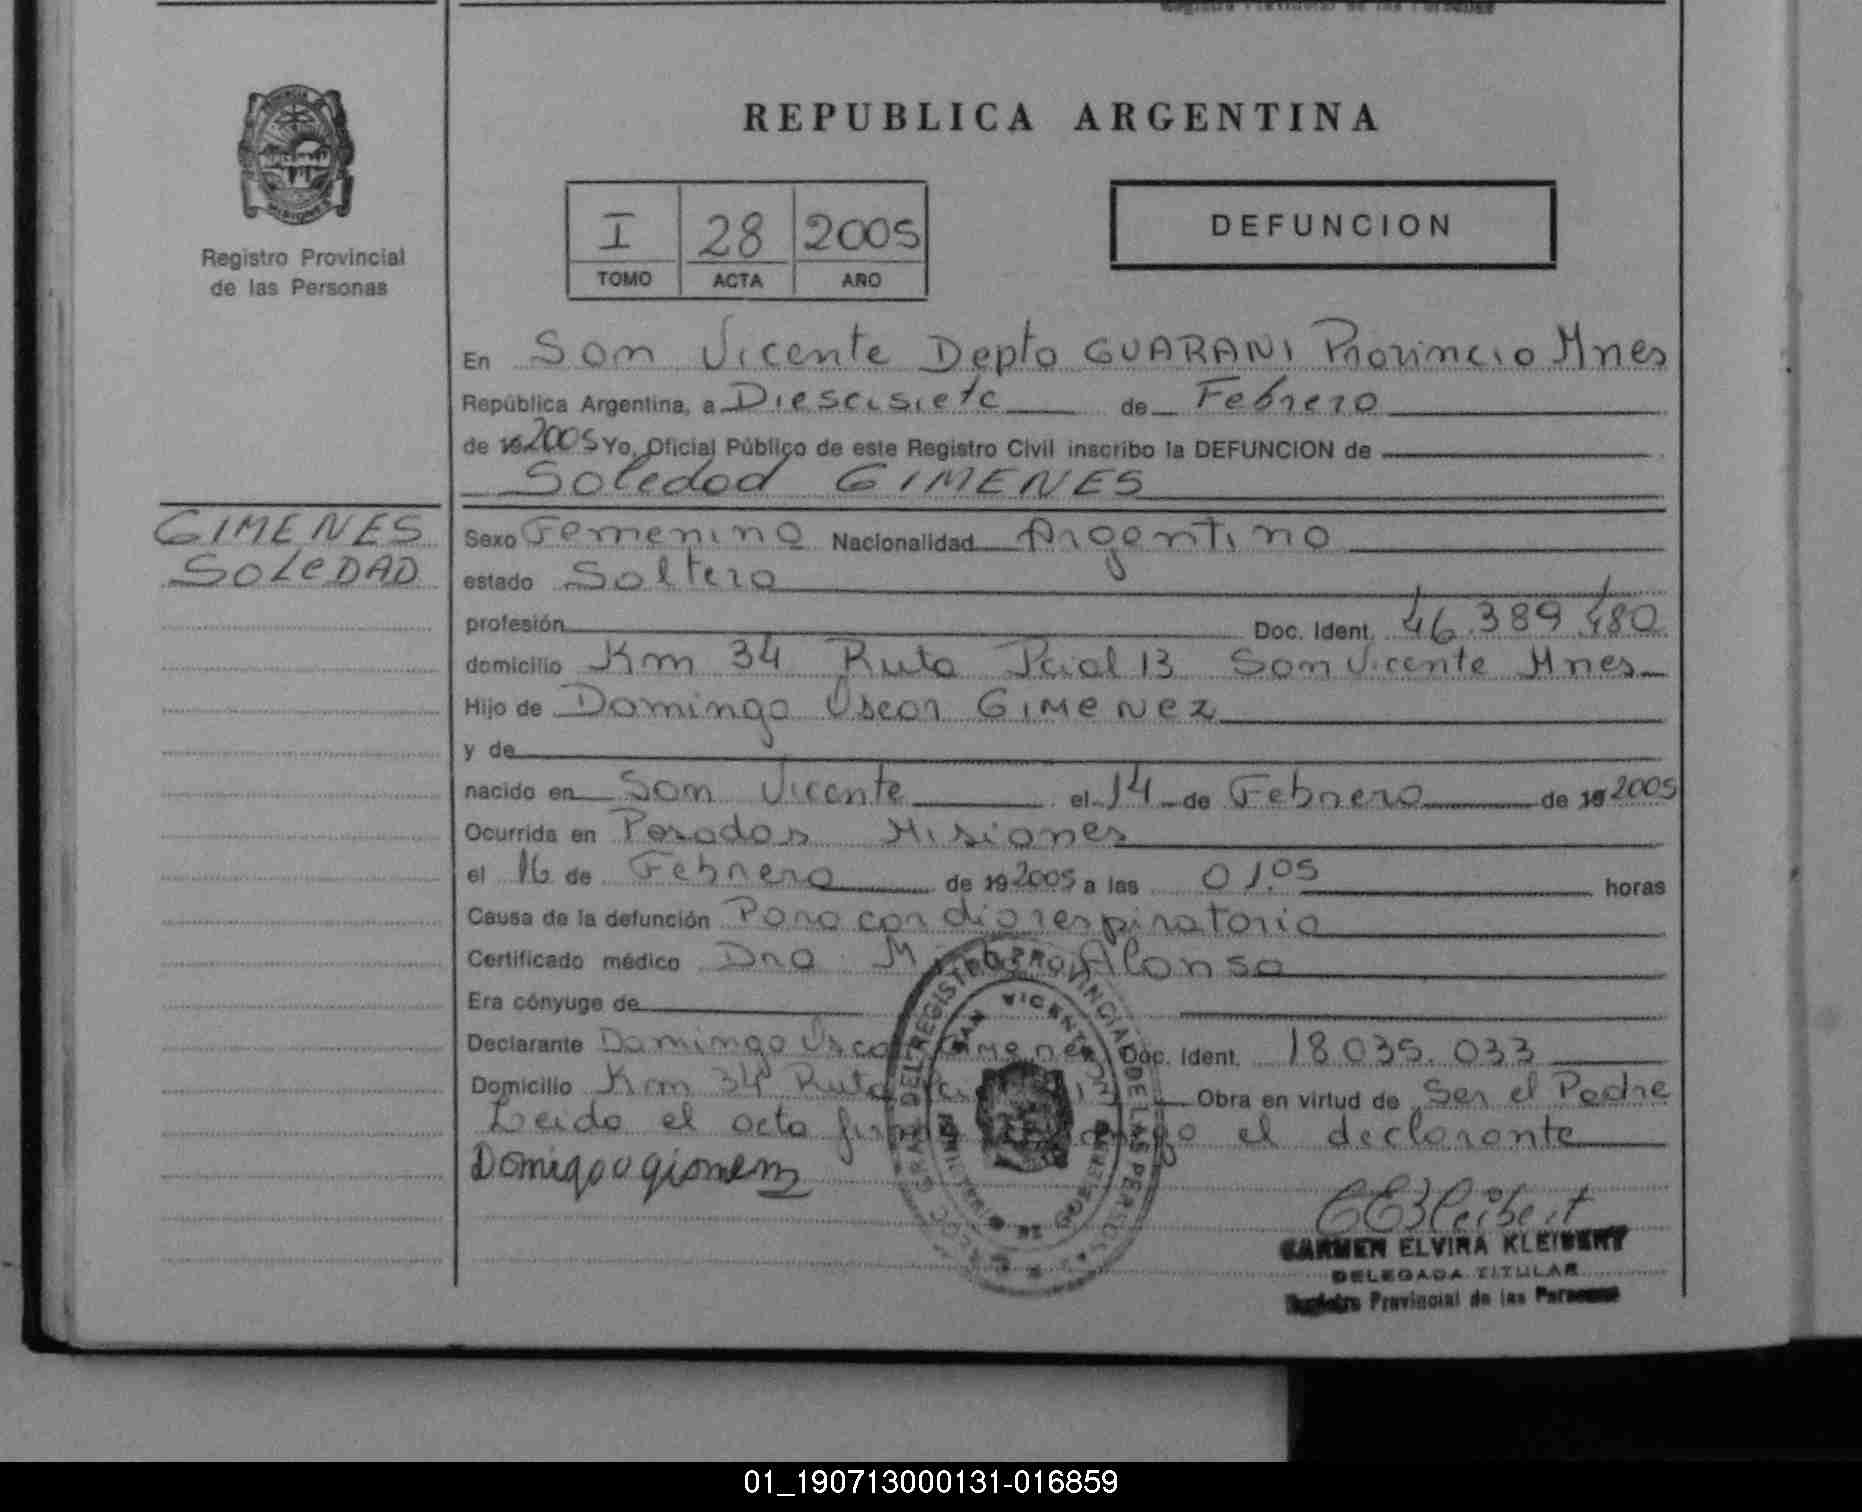 REPUBLICA ARGENTINA
Registro Provincial
de las Personas
I 28 2005
TOMO ACTA AÑO
DEFUNCION
En San Vicente Depto GUARANI Provincia Mnes
República Argentina, a Diescisiete de Febrero
de 19 2005 Yo, Oficial Público de este Registro Civil inscribo la DEFUNCION de
Soledad GIMENES
GIMENES
SOLEDAD
Sexo Femenino Nacionalidad Argentina
estado Soltera
profesión Doc. Ident. 46.389.480
domicilio Km 34 Ruta Pcial 13 San Vicente Mnes
Hijo de Domingo Oscar GIMENEZ
y de
nacido en San Vicente el 14 de Febrero de 19 2005
Ocurrida en Posadas Misiones
el 16 de Febrero de 19 2005 a las 01.05 horas
Causa de la defunción Paro cardiorespiratorio
Certificado médico Dra. M Alonso
Era cónyuge de
Declarante Domingo Oscar Gimenez Doc. Ident. 18.035.033
Domicilio Km 34 Ruta 13 Obra en virtud de Ser el Padre
Leida el acta el declarante
DEL REGISTRO PROVINCIAL DE LAS PERSONAS
SAN VICENTE
CARMEN ELVIRA KLEIBERT
DELEGADA TITULAR
Registro Provincial de las Personas
01_190713000131-016859